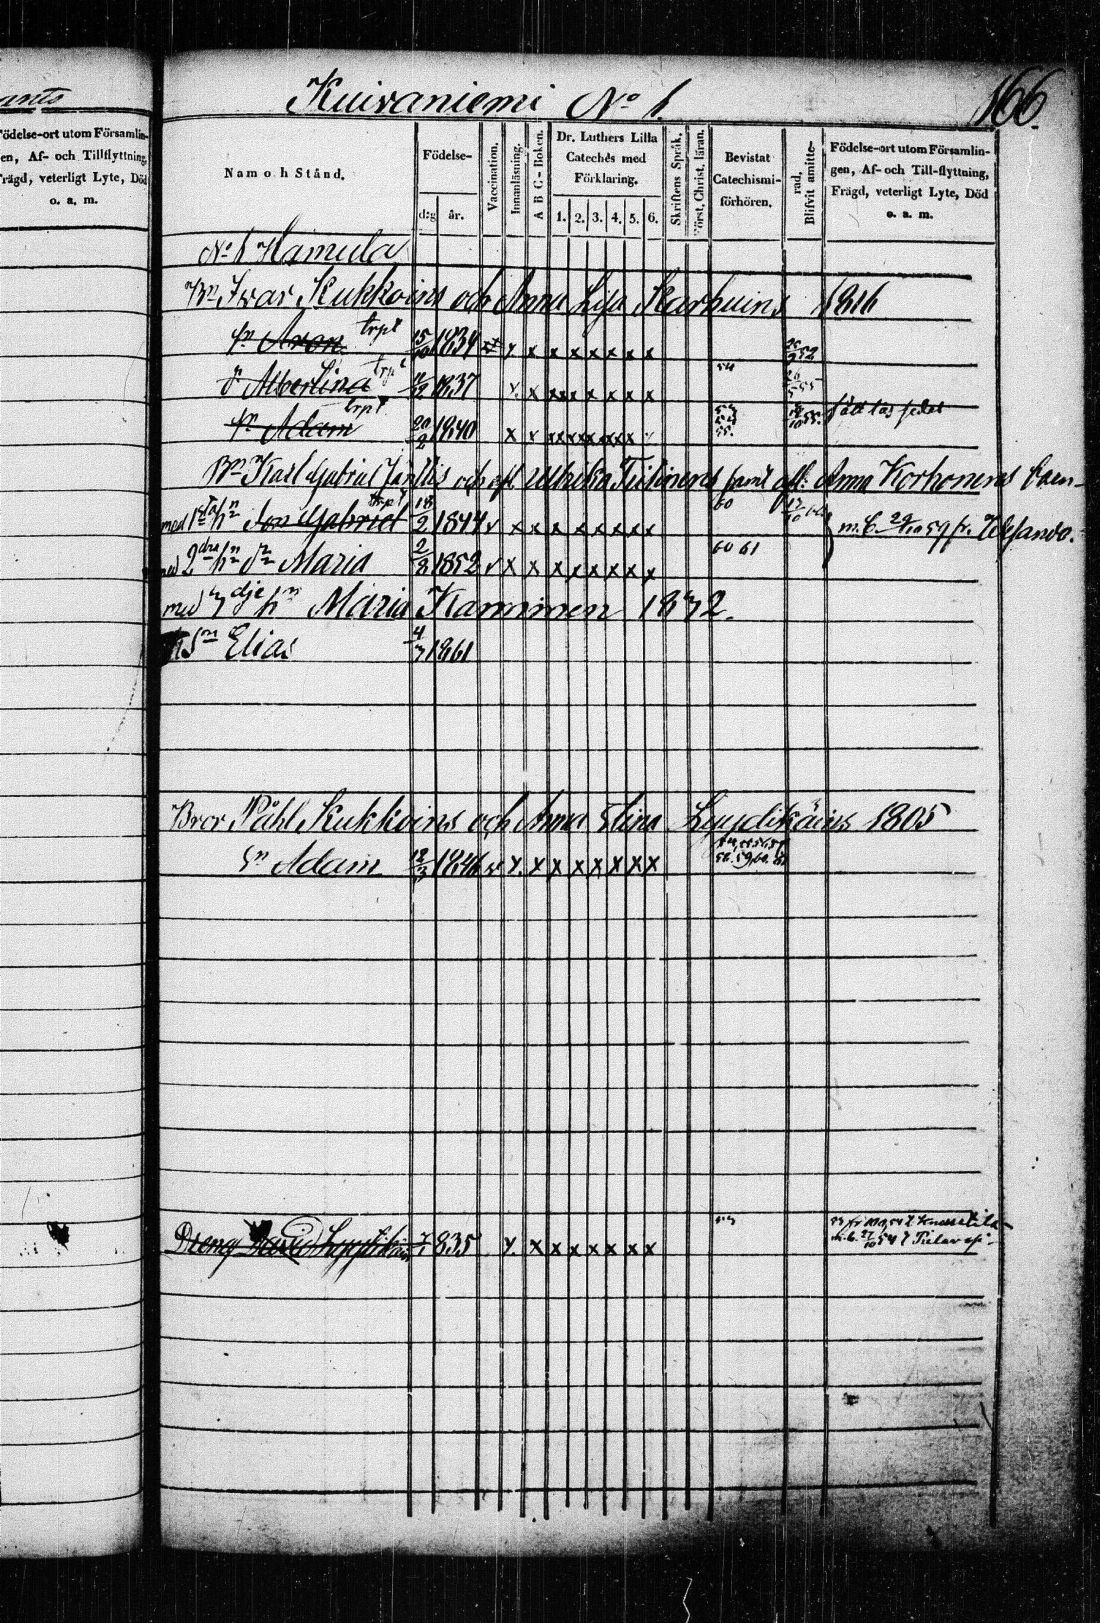 Kuivaniemi No 1. 166.
Födelse-ort utom Församlin-
gen, Af- och Tillflyttning,
Frägd, veterligt Lyte, Död
o. a. m.
Namn o h Stånd.
Födelse-
d:g år.
Vaccination.
Innanläsning.
A B C - Boken.
Dr. Luthers Lilla
Catechés med
Förklaring.
1. 2. 3. 4. 5. 6.
Skriftens Språk.
Först. Christ. läran.
Bevistat
Catechismi-
förhören.
Blifvit amitte-
rad.
Födelse-ort utom Församlin-
gen, Af- och Till-flyttning,
Frägd, veterligt Lyte, Död
o. a. m.
No 1 Hamula
Bn Ivar Kukkoins och Anna Lisa Karhuins 1816
sn Aron trpt 15/10 1834 x x x x x x x x 52
dr Albertina trpt 1837 x x x x x x x x 54 55
sn Adam trpt 20/2 1840 x v x x x x x 53 55. 55.
Bn Karl Gabriel och afl Ulrika Tiilinens samt afl: Anna Korhonens barn
med 1sta hn Son Gabriel trpt 18/2 1844 v x x x x x x x x 60
med 2dra hn dr Maria 2/8 1852 v x x x x x x x x 60 61
med 3dje hn Maria Kamminen 1832.
sn Elias 4/3 1861
Bror Påhl Kukkoins och Anna Elina 1805
sn Adam 1846 v x x x x x x x x 58. 59. 60. 61
Dreng David 1835 x x x x x x x x 53